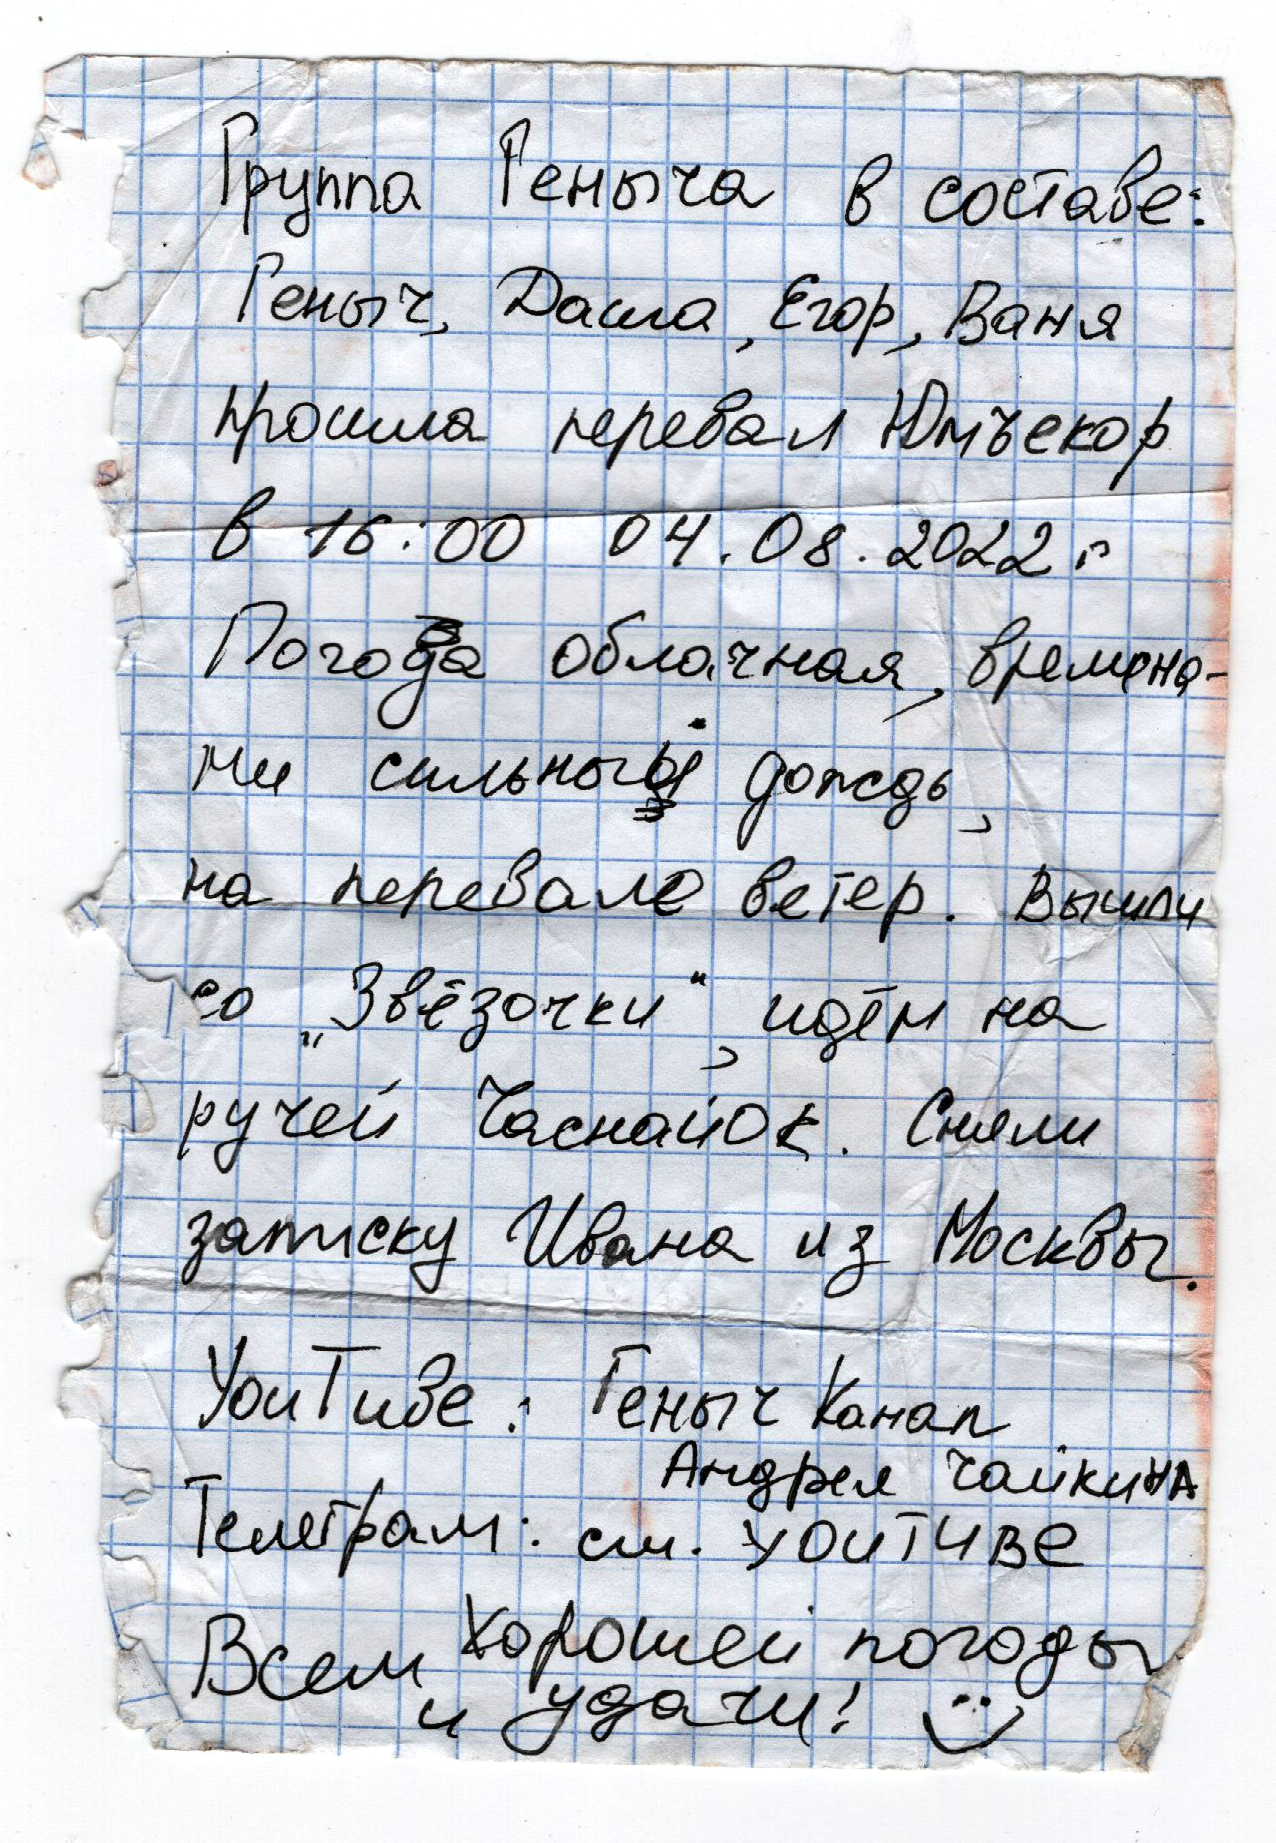 Группа Геныча в составе:
Геныч, Даша, Егор, Ваня
прошла перевал Юмъекор
в 16:00 04.08.2022 г
Погода облачная, времена-
ми сильный дождь,
на перевале ветер. Вышли
со „Звёзочки“, идём на
ручей Часнайок. Сняли
записку Ивана из Москвы.
YouTube: Геныч Канал
Андрея Чайкина
Телеграм: см. YOUTUBE
Всем Хорошей погоды
и удачи!